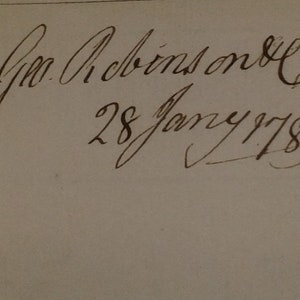 Geo. Robinson & C
28 Jany 178